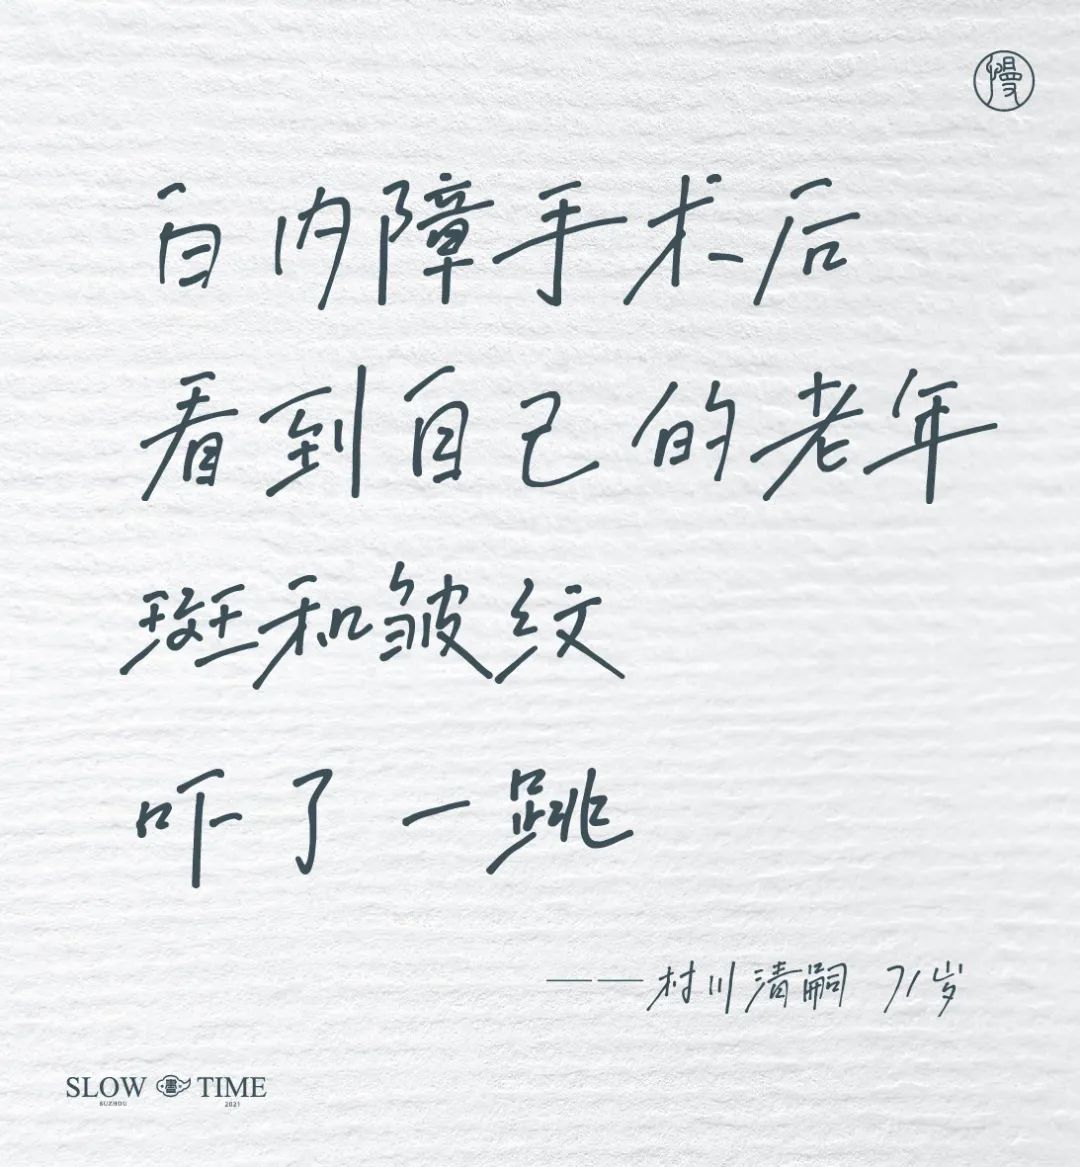 慢
白内障手术后
看到自己的老年
斑和皱纹
吓了一跳
——村川清嗣 71岁
SLOW TIME
SUZHOU 2021